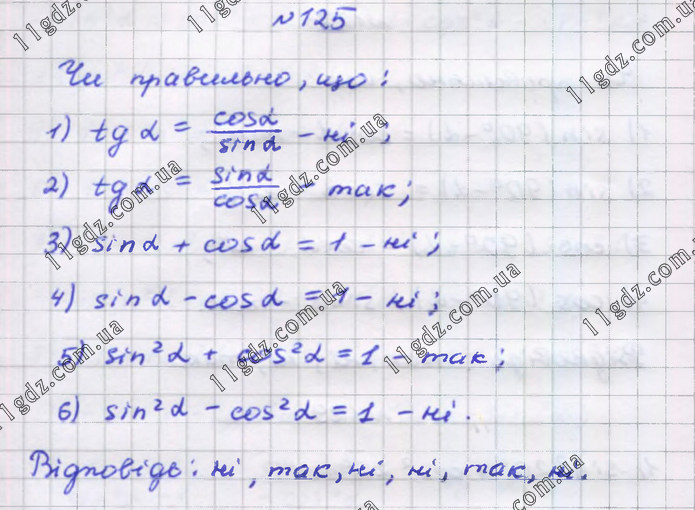 №125
Чи правильно, що:
1) tg α = cosα/sinα – ні;
2) tg α = sinα/cosα – так;
3) sinα + cosα = 1 – ні;
4) sinα - cosα = 1 – ні;
5) sin²α + cos²α = 1 – так;
6) sin²α – cos²α = 1 – ні.
Відповідь: ні, так, ні, ні, так, ні.
11gdz.com.ua
11gdz.com.ua
11gdz.com.ua
11gdz.com.ua
11gdz.com.ua
11gdz.com.ua
11gdz.com.ua